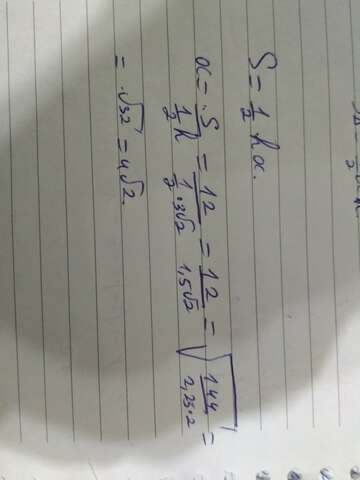 S = 1/2 h a.
a = S / (1/2 h) = 12 / (1/2 · 3√2) = 12 / (1,5√2) = √(144 / (2,25·2)) =
= √32 = 4√2.